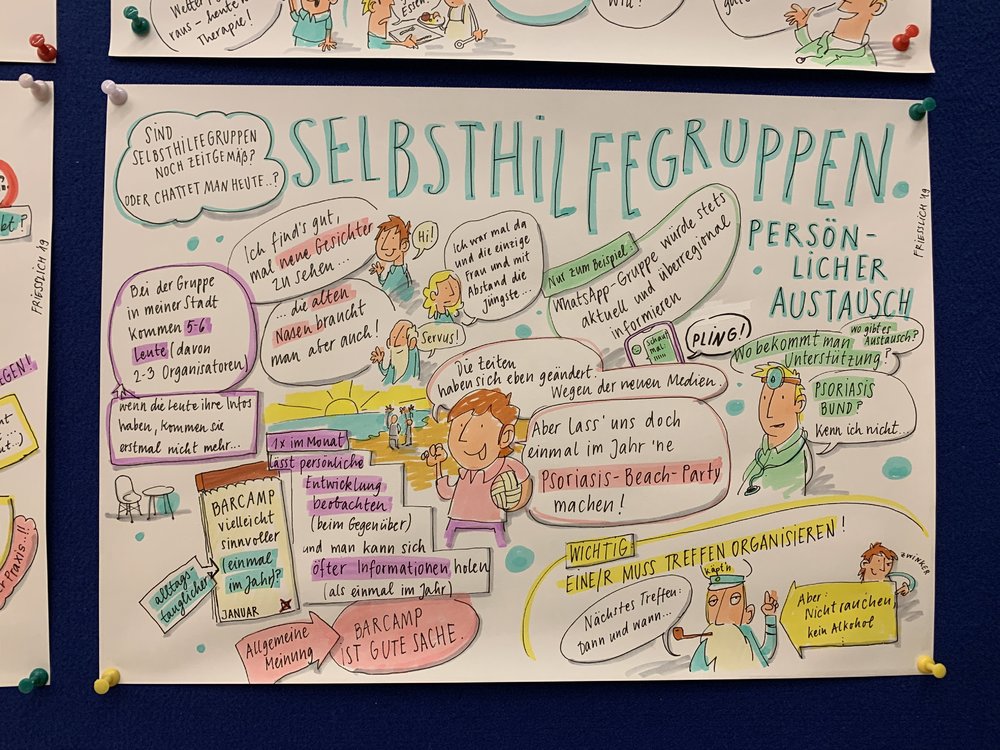 Wetter
raus - heute
Therapie!
Essen!
FRIESSLICH '19
SIND
SELBSTHILFEGRUPPEN
NOCH ZEITGEMÄß?
ODER CHATTET MAN HEUTE..?
SELBSTHILFEGRUPPEN.
PERSÖN-
LICHER
AUSTAUSCH
FRIESSLICH '19
Ich find's gut,
mal neue Gesichter
zu sehen...
Hi!
Ich war mal da
und die einzige
Frau und mit
Abstand die
Jüngste...
Nur zum Beispiel:
WhatsApp-Gruppe würde stets
aktuell und überregional
informieren
schau
mal:
PLING!
... die alten
Nasen braucht
man aber auch!
Servus!
Bei der Gruppe
in meiner Stadt
kommen 5-6
Leute (davon
2-3 Organisatoren)
wenn die Leute ihre Infos
haben, kommen sie
erstmal nicht mehr...
Die Zeiten
haben sich eben geändert.
Wegen der neuen Medien.
Aber lass' uns doch
einmal im Jahr 'ne
Psoriasis-Beach-Party
machen!
Wo bekommt man
Unterstützung?
wo gibt es
Austausch?
PSORIASIS
BUND?
Kenn ich nicht...
1x im Monat
lässt persönliche
Entwicklung
beobachten
(beim Gegenüber)
und man kann sich
öfter Informationen holen
(als einmal im Jahr)
BARCAMP
vielleicht
sinnvoller
(einmal
im Jahr)?
JANUAR
alltags-
tauglicher
Allgemeine
Meinung
BARCAMP
IST GUTE SACHE.
WICHTIG:
EINE/R MUSS TREFFEN ORGANISIEREN!
Nächstes Treffen:
Dann und wann...
käpt'n
ZWINKER
Aber:
Nicht rauchen
kein Alkohol